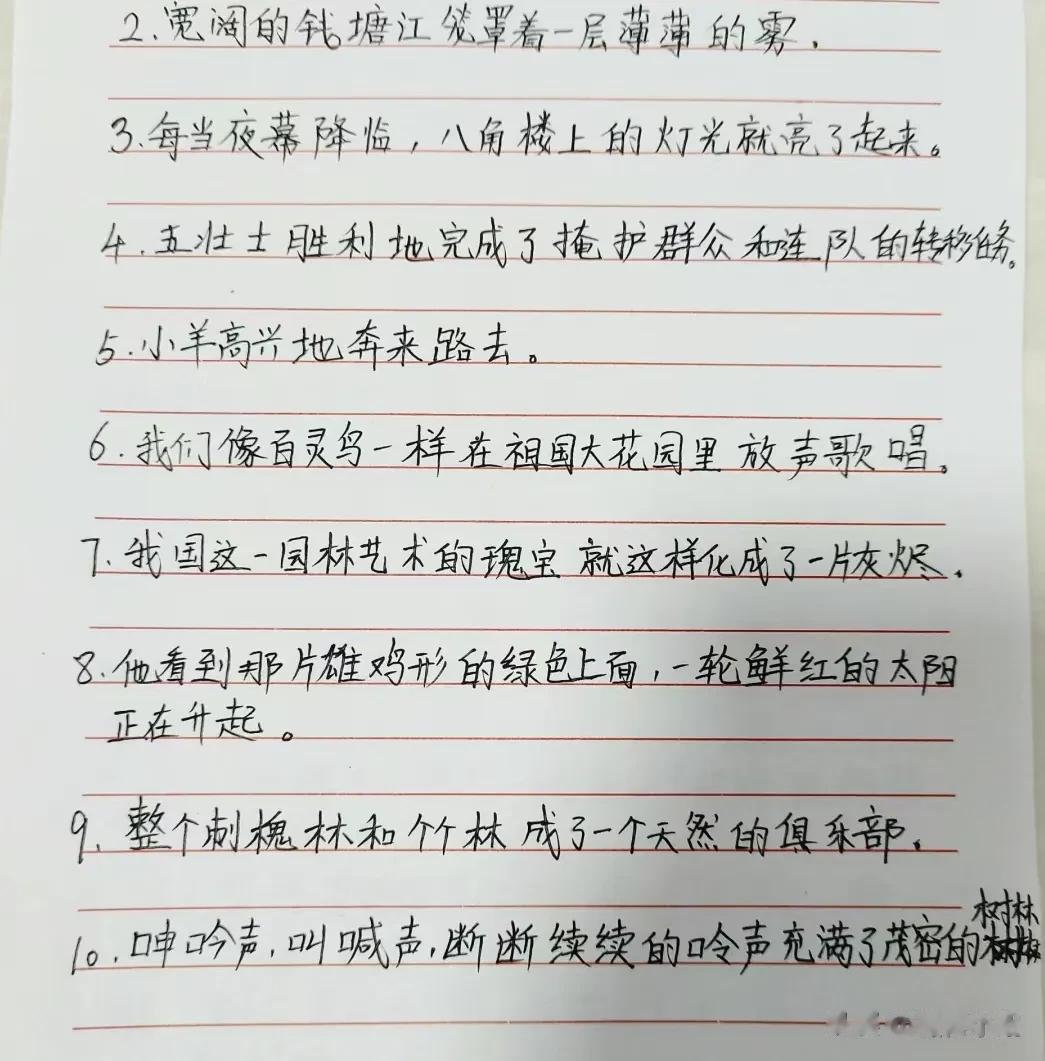 2.宽阔的钱塘江笼罩着一层薄薄的雾.
3.每当夜幕降临,八角楼上的灯光就亮了起来。
4.五壮士胜利地完成了掩护群众和连队的转移任务。
5.小羊高兴地奔来路去。
6.我们像百灵鸟一样在祖国大花园里放声歌唱。
7.我国这一园林艺术的瑰宝就这样化成了一片灰烬.
8.他看到那片雄鸡形的绿色上面,一轮鲜红的太阳
正在升起。
9.整个刺槐林和竹林成了一个天然的俱乐部.
树林
10.呻吟声,叫喊声,断断续续的呤声充满了茂密的